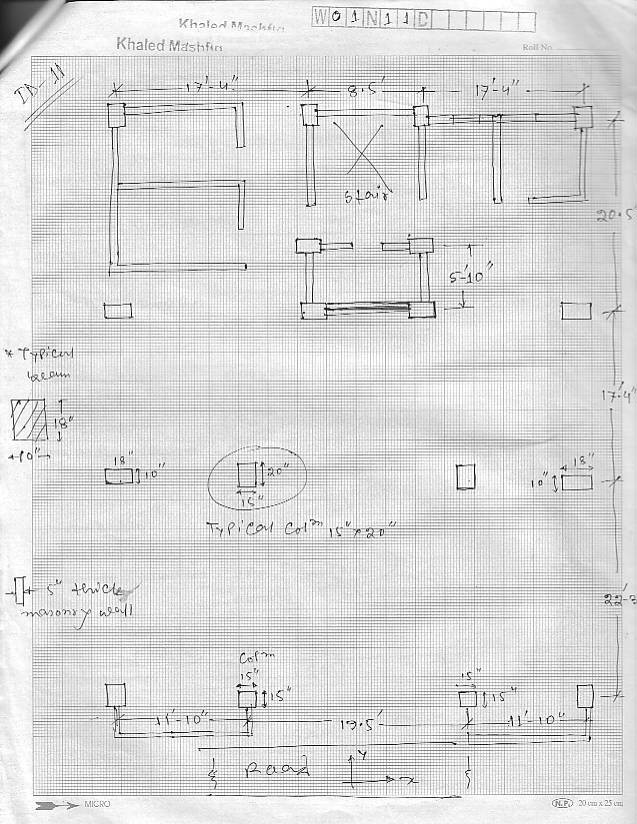 Khaled Mashfiq
W 0 1 N 1 1 D
Khaled Mashfiq
Roll No.
ID-11
17'-4" 8.5' 17'-4"
Stair
20.5'
5'-10"
* Typical
beam
18"
10"
17'-4"
18"
10"
20"
15"
18"
10"
Typical Colm 15" x 20"
5" thick
masonry wall
22'-3
Colm
15"
15"
15"
15"
11'-10" 11'-10"
Road
Y
X
MICRO
N.P. 20 cm x 25 cm